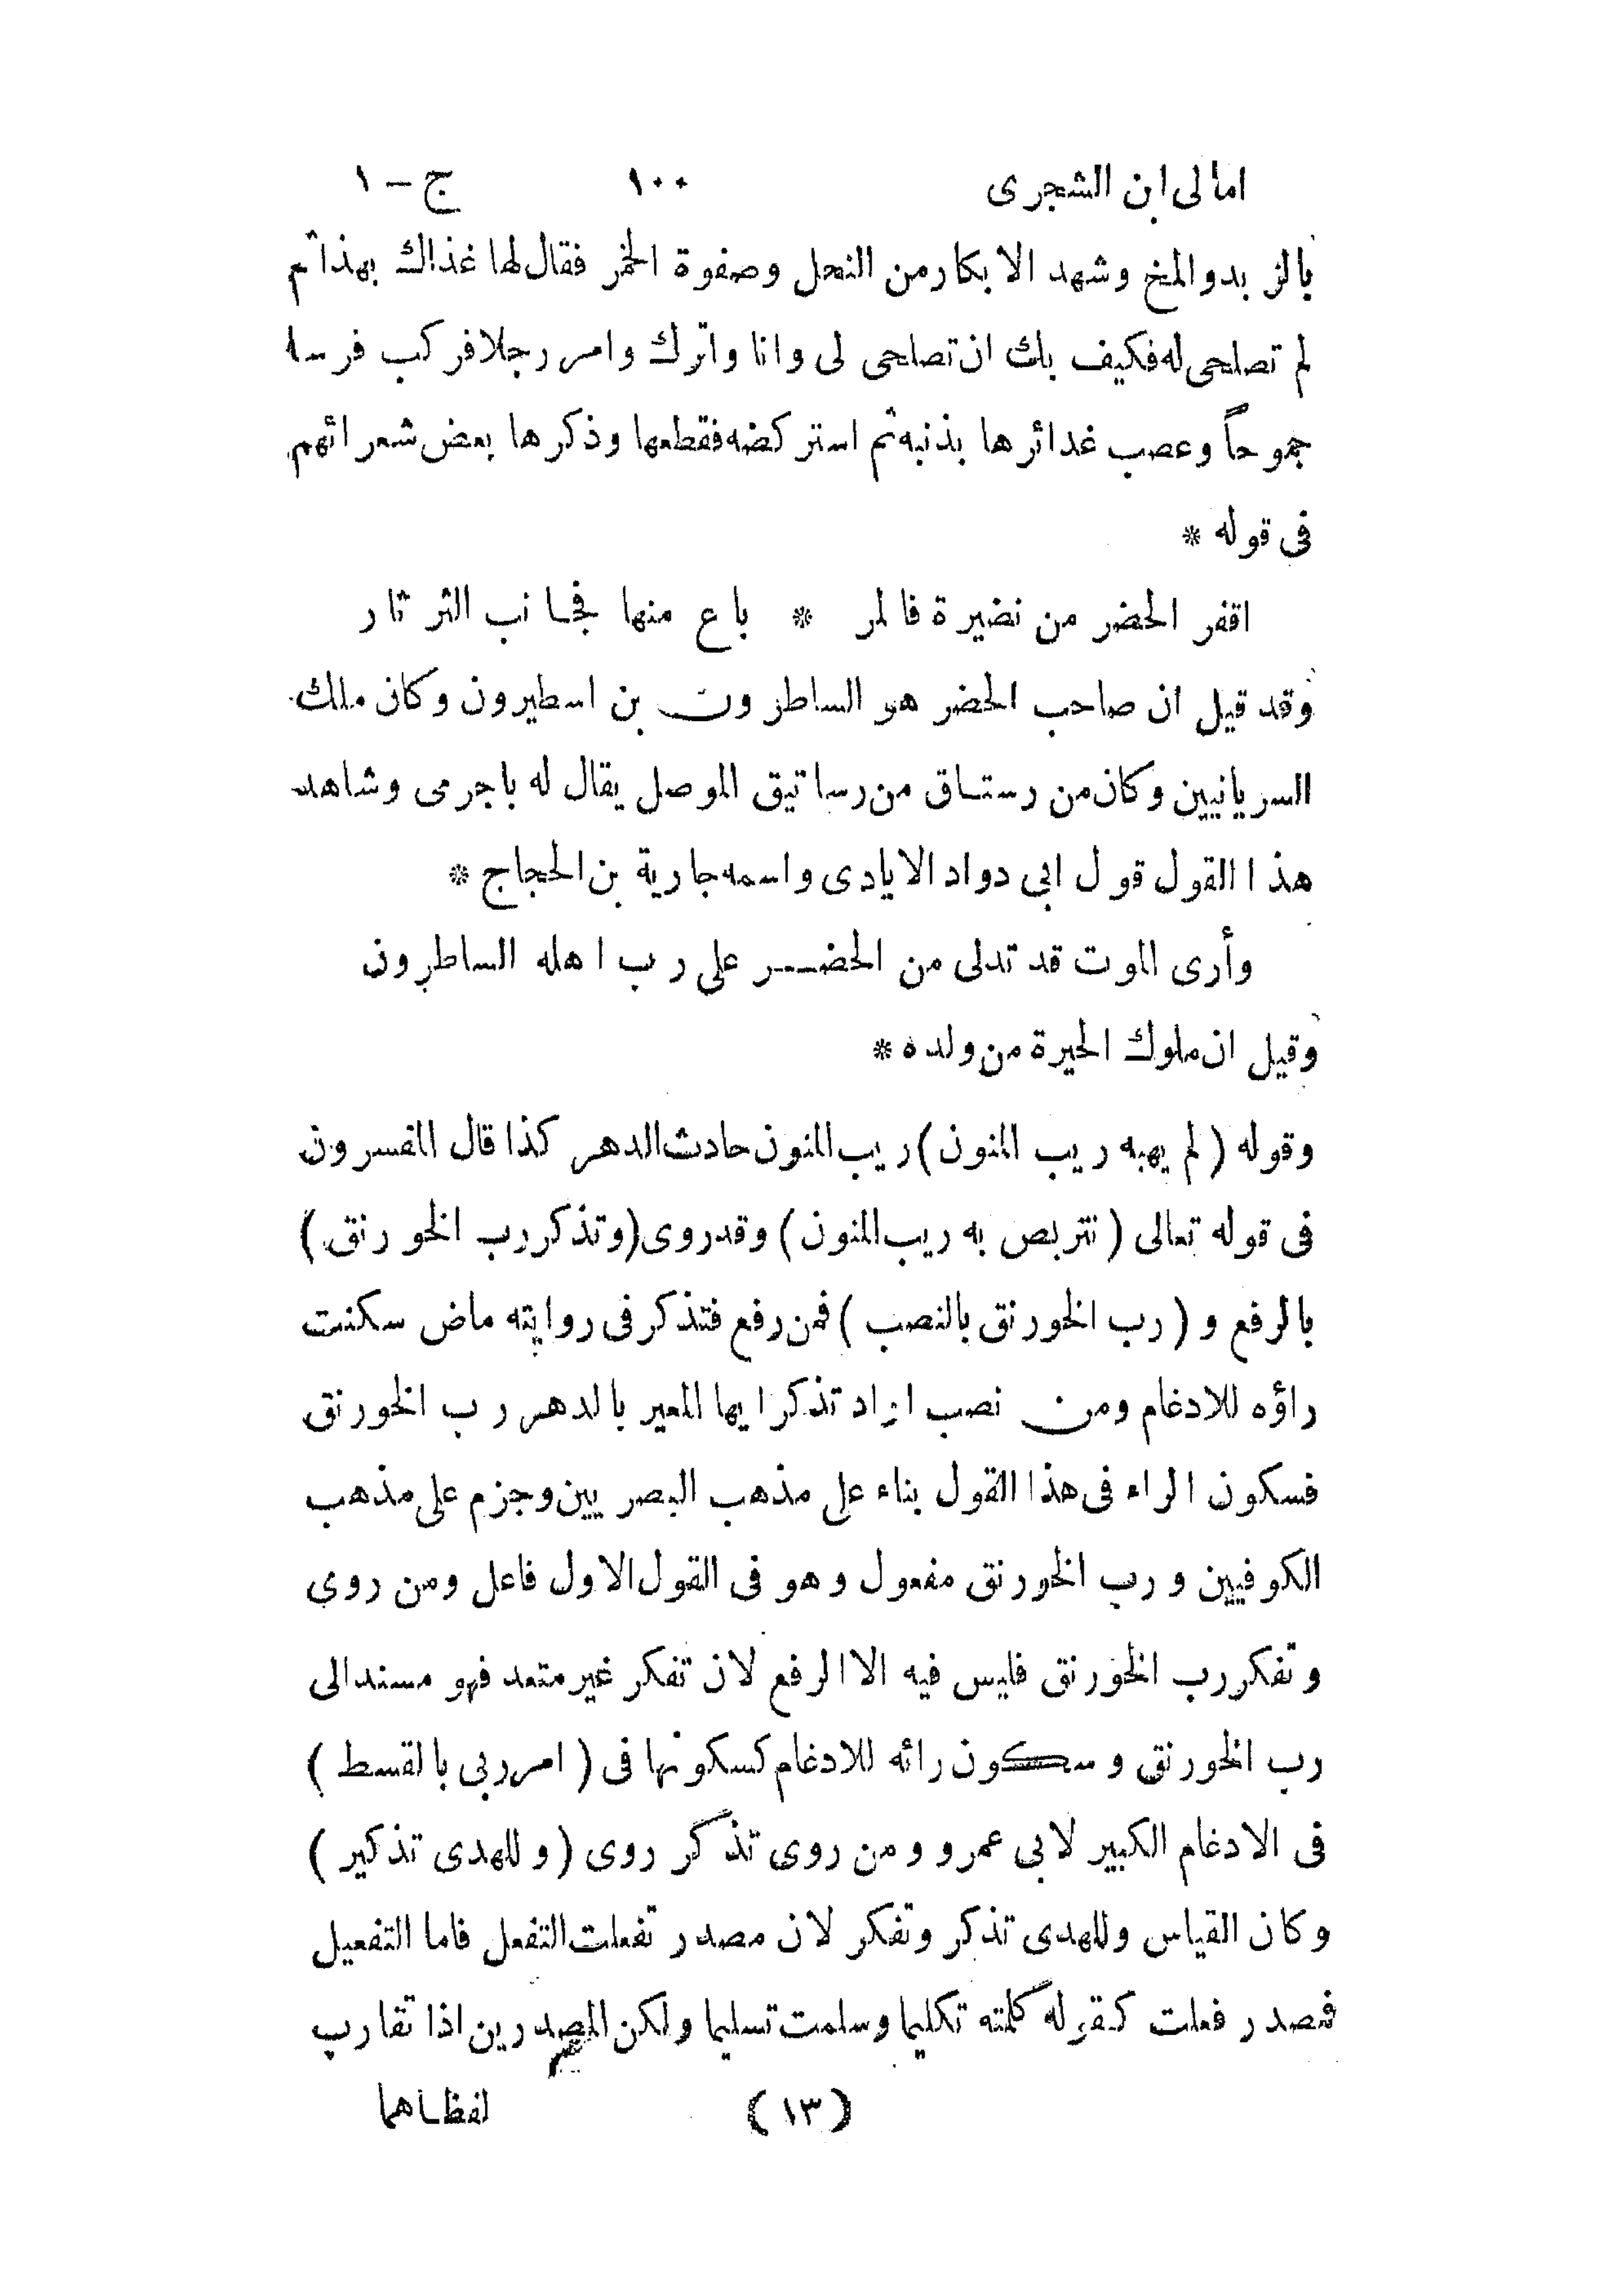 امالى ابن الشجرى ١٠٠ ج – ١
بالزبد والمخ وشهد الابكار من النحل وصفوة الخمر فقال لها غذاك بهذا ثم
لم تصلحى له فكيف بك ان تصلحى لى وانا واترك وامر رجلا فركب فرسا
جموحاً وعصب غدائرها بذنبه ثم استركضه فقطعها وذكرها بعض شعرائهم
فى قوله *
اقفر الحضر من نضيرة فالمر * باع منها فجانب الثرثار
وقد قيل ان صاحب الحضر هو الساطرون بن اسطيرون وكان ملك
السريانيين وكان من رستاق من رساتيق الموصل يقال له باجرمى وشاهد
هذا القول قول ابى دواد الايادى واسمه جارية بن الحجاج *
وأرى الموت قد تدلى من الحضـــر على رب اهله الساطرون
وقيل ان ملوك الحيرة من ولده *
وقوله ( لم يهبه ريب المنون ) ريب المنون حادث الدهر كذا قال المفسرون
فى قوله تعالى ( نتربص به ريب المنون ) وقد روى ( وتذكر رب الخورنق )
بالرفع و ( رب الخورنق بالنصب ) فمن رفع فتذكر فى روايته ماض سكنت
راؤه للادغام ومن نصب اراد تذكر ايها المعير بالدهر رب الخورنق
فسكون الراء فى هذا القول بناء على مذهب البصريين وجزم على مذهب
الكوفيين ورب الخورنق مفعول وهو فى القول الاول فاعل ومن روى
وتفكر رب الخورنق فليس فيه الا الرفع لان تفكر غير متعد فهو مسند الى
رب الخورنق وسكون رائه للادغام كسكونها فى ( امر ربى بالقسط )
فى الادغام الكبير لابى عمرو ومن روى تذكر روى ( وللهدى تذكير )
وكان القياس وللهدى تذكر وتفكر لان مصدر تفعلت التفعل فاما التفعيل
فمصدر فعلت كقوله كلمته تكليما وسلمت تسليما ولكن المصدرين اذا تقارب
(١٣) لفظاهما